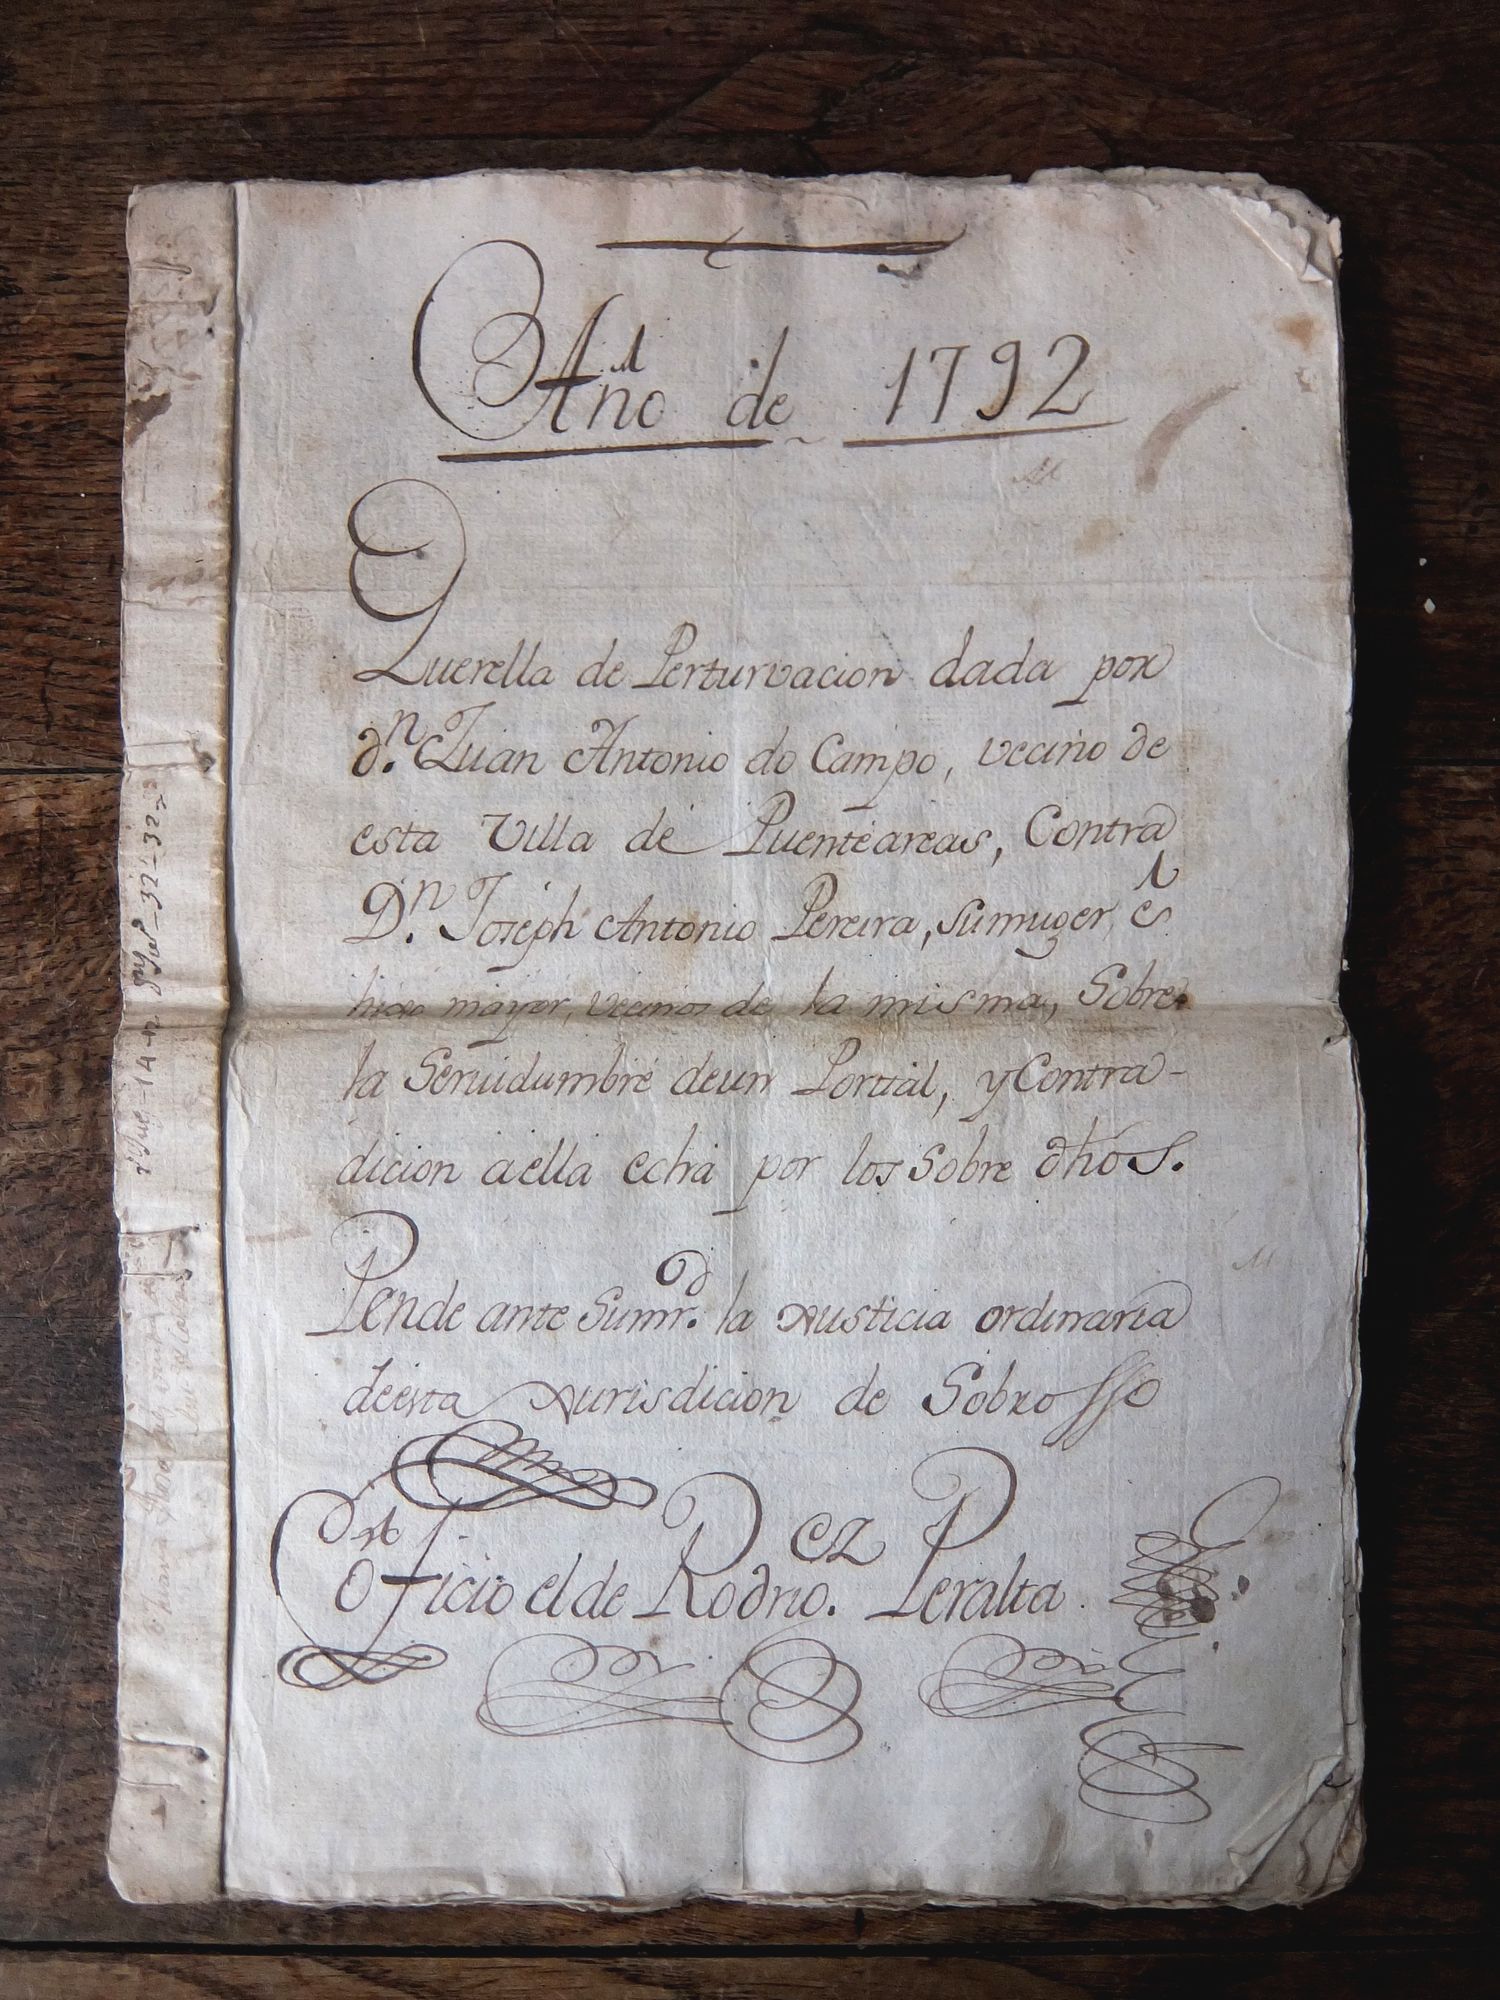 Año de 1792
Querella de Perturvacion dada por
dn. Juan Antonio do Campo, vecino de
esta Villa de Puenteareas, Contra
Dn. Joseph Antonio Pereira, sumuger, é
hijo mayor, vecinos de la misma, Sobre
la Seruidumbre deun Portal, y Contra-
dicion aella echa por los Sobre dhos.
Pende ante Sumrd. la Xusticia ordinaria
deesta Xurisdicion de Sobrosso
oficio el de Rodrigez. Peralta